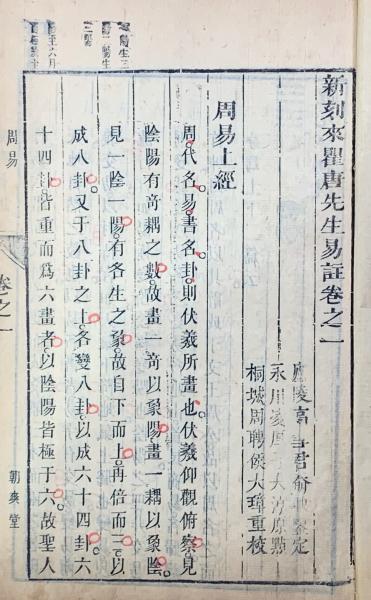 新刻來瞿唐先生易註卷之一
廬陵高君鑒定
永川凌厚子大清原點
桐城周聘侯大璋重校
周易上經
周代名易書名卦則伏羲所畫也伏羲仰觀俯察見
陰陽有竒耦之數故畫一竒以象陽畫一耦以象陰
見一陰一陽有各生之象故自下而上再倍而三以
成八卦又于八卦之上各變八卦以成六十四卦六
十四卦皆重而爲六畫者以陰陽皆極于六故聖人
周易
卷之一
朝爽堂